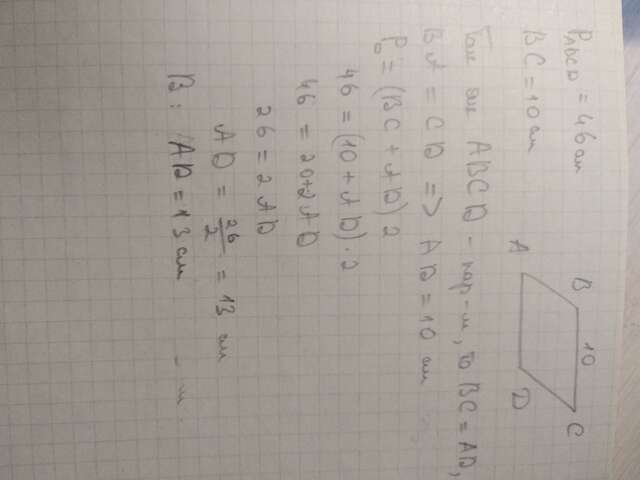 P ABCD = 46 см
BC = 10 см
A
B
10
C
D
Так як ABCD - пар-м, то BC = AD,
BA = CD => AD = 10 см
P = (BC + AD) 2
46 = (10 + AD) · 2
46 = 20+2AD
26 = 2AD
AD = 26/2 = 13 см
В: AD = 13 см